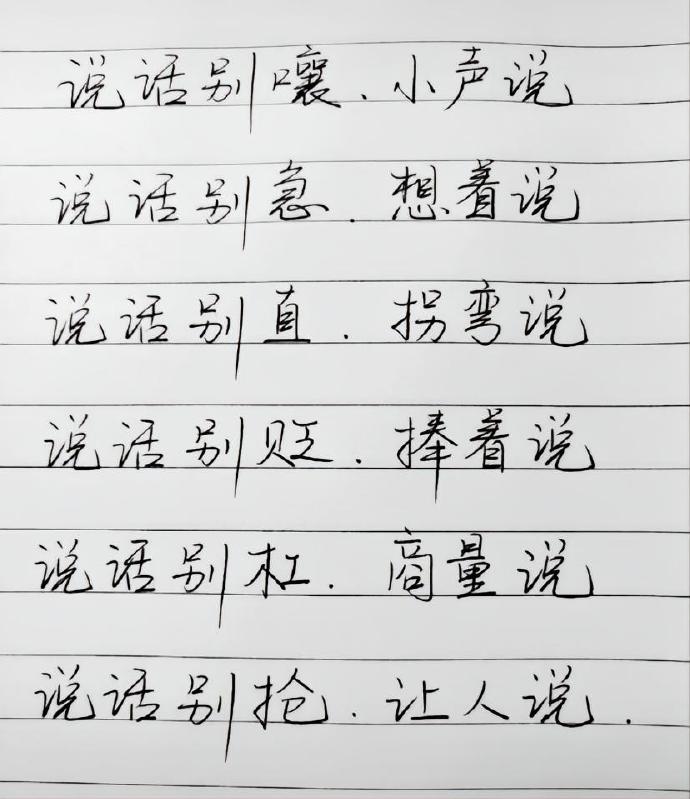 说话别嚷.小声说
说话别急.想着说
说话别直.拐弯说
说话别贬.捧着说
说话别杠.商量说
说话别抢.让人说.